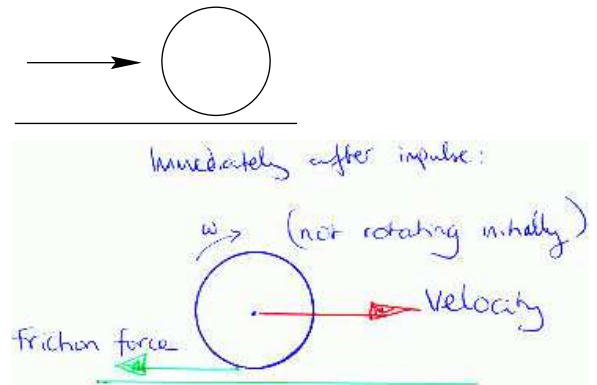 Immediately after impulse:
ω (not rotating initially)
Velocity
friction force